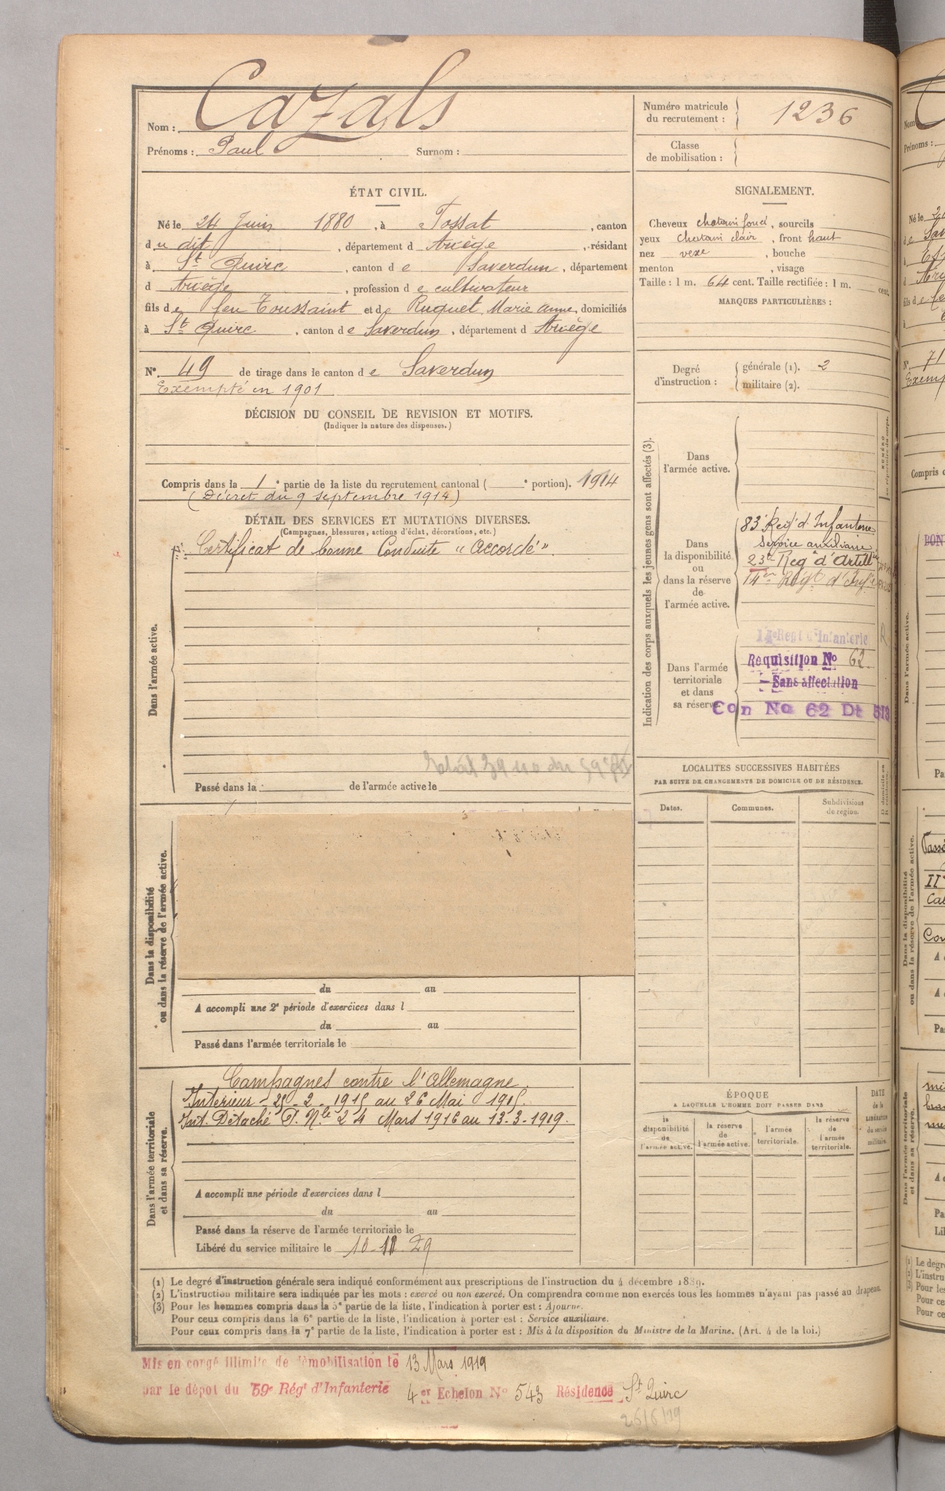 Nom : Cazals
Prénoms : Paul Surnom :
Numéro matricule du recrutement : 1236
Classe de mobilisation :
ÉTAT CIVIL.
Né le 24 Juin 1880, à Tossat, canton
du dit, département d Ariège, résidant
à St Quirc, canton de Saverdun, département
d Ariège, profession de cultivateur
fils de feu Toussaint et de Ruquet Marie Anne, domiciliés
à St Quirc, canton de Saverdun, département d Ariège
N° 49 de tirage dans le canton de Saverdun
Exempté en 1901
SIGNALEMENT.
Cheveux chatain foncé, sourcils
yeux chatain clair, front haut
nez , bouche
menton , visage
Taille : 1 m. 64 cent. Taille rectifiée : 1 m. cent.
MARQUES PARTICULIÈRES :
Degré d'instruction : générale (1). 2
militaire (2).
DÉCISION DU CONSEIL DE REVISION ET MOTIFS.
(Indiquer la nature des dispenses.)
Compris dans la 1e partie de la liste du recrutement cantonal ( e portion). 1914
(Décret du 9 septembre 1914)
DÉTAIL DES SERVICES ET MUTATIONS DIVERSES.
(Campagnes, blessures, actions d'éclat, décorations, etc.)
Certificat de bonne Conduite "Accordé"
Dans l'armée active.
Passé dans la de l'armée active le
Indication des corps auxquels les jeunes gens sont affectés (3).
Dans l'armée active.
Dans la disponibilité ou dans la réserve de l'armée active.
83e Regt d'Infanterie
service auxiliaire
23e Regt d'Artill
14e Regt d'Inf
Dans l'armée territoriale et dans sa réserve
Requisition No 62
Sans affectation
Con No 62 Dt
LOCALITES SUCCESSIVES HABITÉES
PAR SUITE DE CHANGEMENTS DE DOMICILE OU DE RÉSIDENCE.
Dates. Communes. Subdivisions de région.
Dans la disponibilité
ou dans la réserve de l'armée active.
du au
A accompli une 2e période d'exercices dans l
du au
Passé dans l'armée territoriale le
Dans l'armée territoriale
et dans sa réserve.
Campagnes contre l'Allemagne
Intérieur 25-2-1915 au 26 Mai 1915
Int. Détaché 24 Mars 1916 au 13-3-1919.
A accompli une période d'exercices dans l
du au
Passé dans la réserve de l'armée territoriale le
Libéré du service militaire le 10-11 29
ÉPOQUE
A LAQUELLE L'HOMME DOIT PASSER DANS
la disponibilité de l'armée active.
la réserve de l'armée active.
l'armée territoriale.
la réserve de l'armée territoriale.
DATE de la LIBÉRATION du service militaire.
(1) Le degré d'instruction générale sera indiqué conformément aux prescriptions de l'instruction du 4 décembre 1889.
(2) L'instruction militaire sera indiquée par les mots : exercé ou non exercé. On comprendra comme non exercés tous les hommes n'ayant pas passé au drapeau.
(3) Pour les hommes compris dans la 5e partie de la liste, l'indication à porter est : Ajourné.
Pour ceux compris dans la 6e partie de la liste, l'indication à porter est : Service auxiliaire.
Pour ceux compris dans la 7e partie de la liste, l'indication à porter est : Mis à la disposition du Ministre de la Marine. (Art. 4 de la loi.)
Mis en congé illimité de démobilisation le 13 Mars 1919
par le dépot du 59e Régt d'Infanterie 4er Echelon No 543 Résidence St Quirc
26/6/19